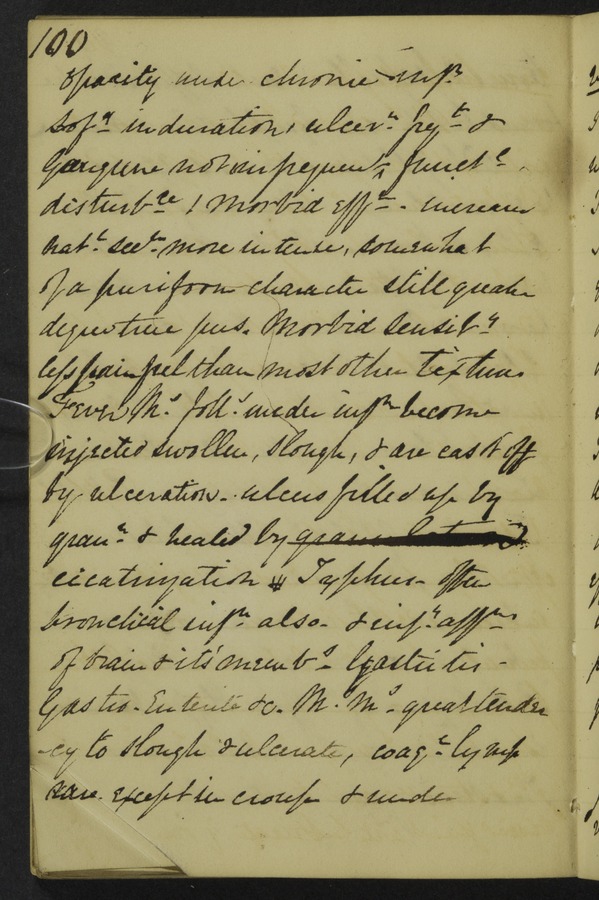 100
opacity under chronic infn
Sofg induration, ulcern freqt &
Gangrene not infrequent, functl
disturbce / Morbid effn - increase
natl secn more intense, somewhat
of a puriform character still greater
degree true pus. Morbid sensiby
less painful than most other textures
Fever Ms folls under infn become
injected swollen, slough, & are cast off
by ulceration - ulcers filled up by
grann & healed by
cicatrization Typhus - often
bronchial infn also - & infy affns
of brain & its membs - Gastritis -
Gastro-Enterite &c. M. Ms - great tenden
-cy to slough & ulcerate, coagn lymph
rare except in croup & under